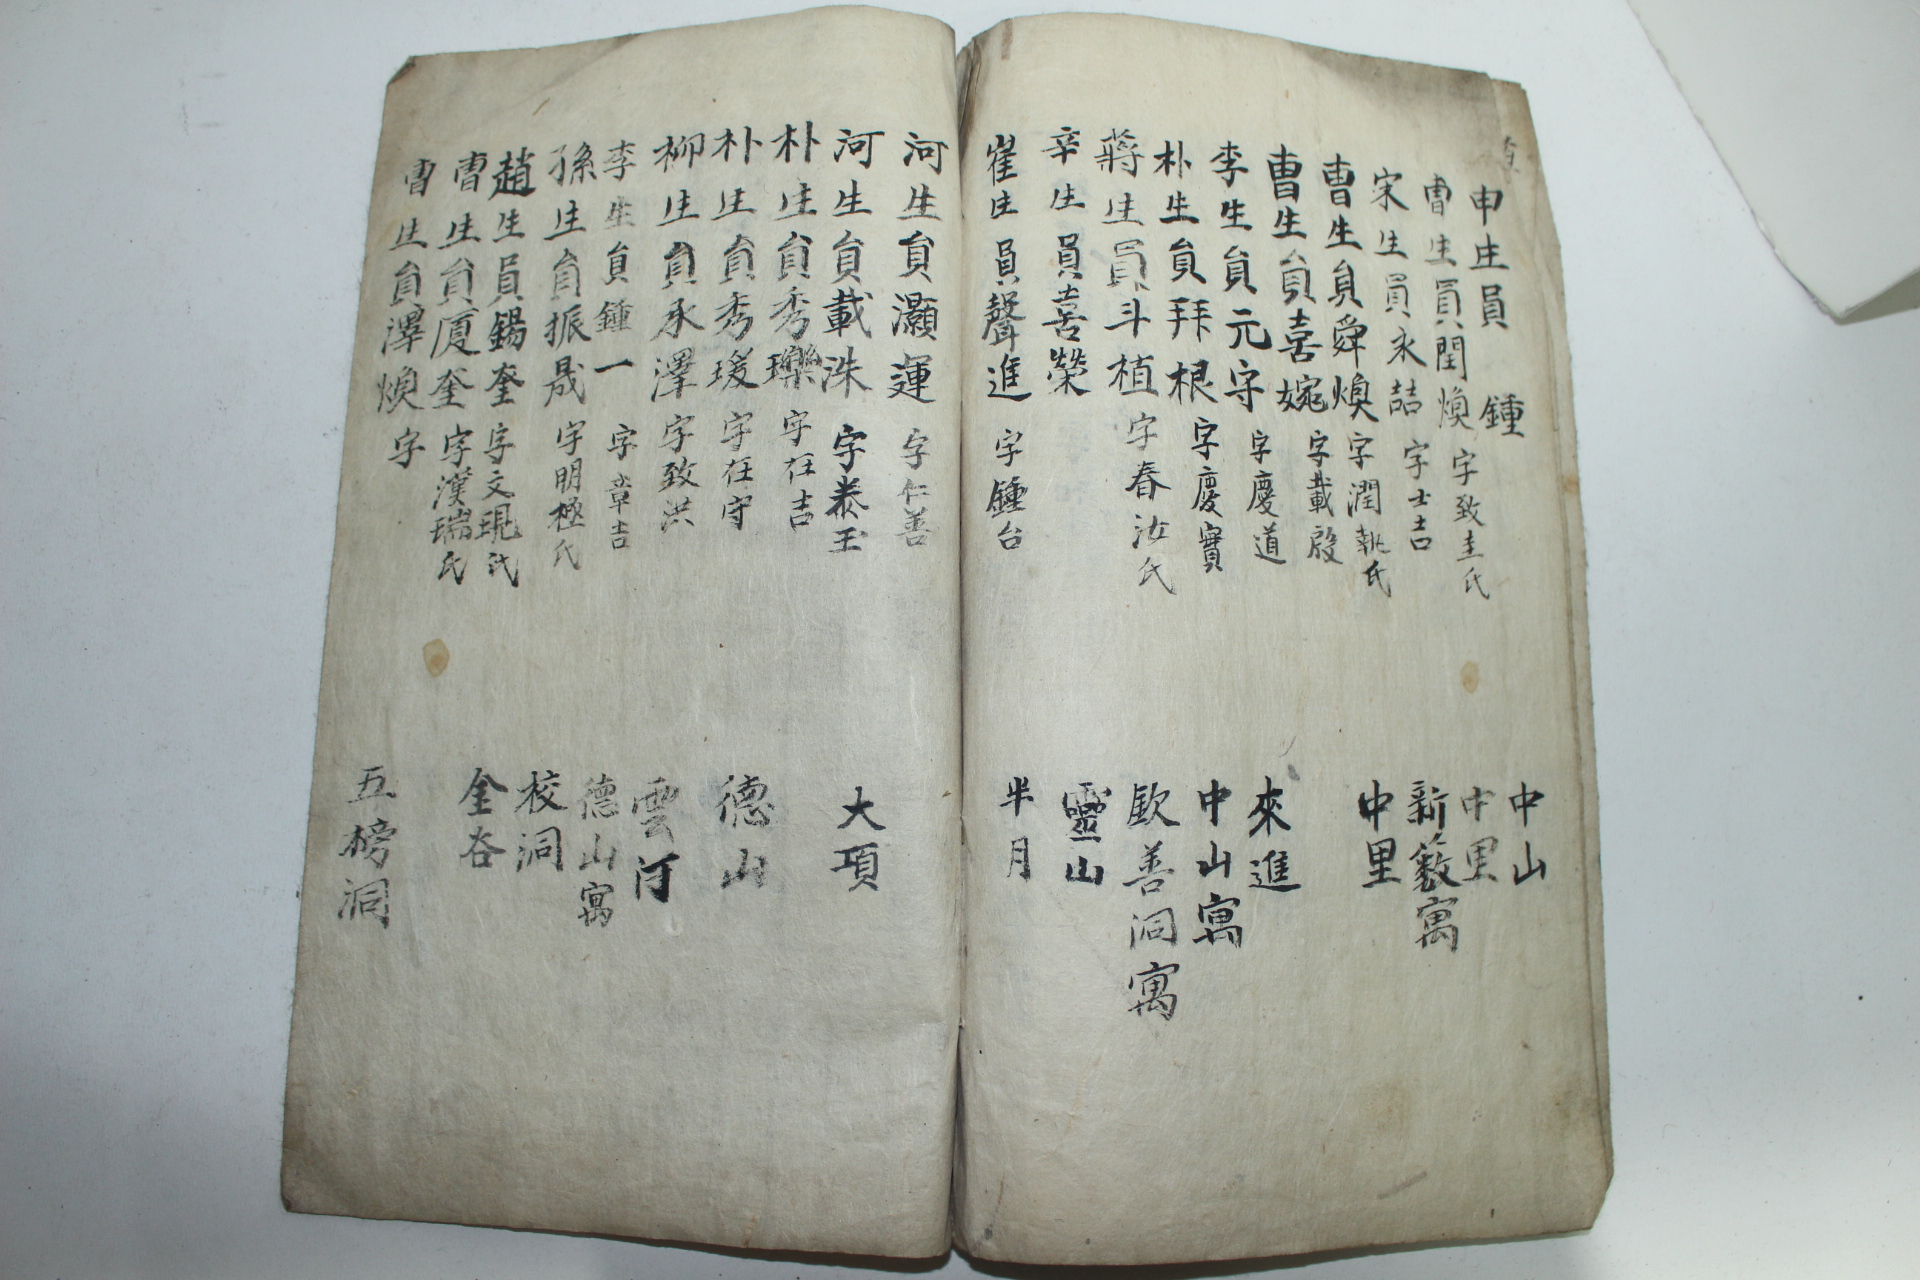 申生員 鍾 中山
曺生員閏煥 字致圭氏 中里
宋生員永喆 字士吉 新籔寓
曺生員舜煥 字潤執氏 中里
曺生員喜婉 字載殷
李生員元守 字慶道 來進
朴生員拜根 字慶寶 中山寓
蔣生員斗植 字春汝氏 歐善洞寓
辛生員喜榮 靈山
崔生員聲進 字鍾台 半月
河生員灝運 字仁善
河生員載洙 字泰玉 大項
朴生員秀瓅 字在吉
朴生員秀瑗 字在守 德山
柳生員永澤 字致洪 雲汀
李生員鍾一 字章吉 德山寓
孫生員振晟 字明極氏 校洞
趙生員錫奎 字文現氏 金谷
曺生員廈奎 字漢瑞氏
曺生員澤煥 字 五榜洞